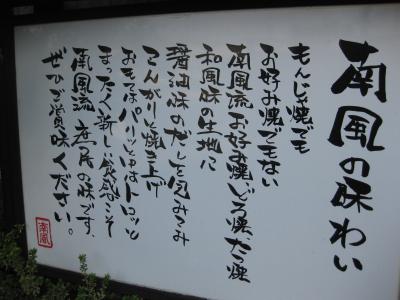 南風の味わい
もんじゃ焼でも
お好み焼でもない
南風流お好み焼、じろ焼、たら焼
和風味の生地に
醤油味のだしを包みこみ
こんがりと焼き上げ
おもてはパリッと中はトロッと
まったく新しい食感こそ
南風流 庶民の味です、
ぜひご賞味ください。
南風